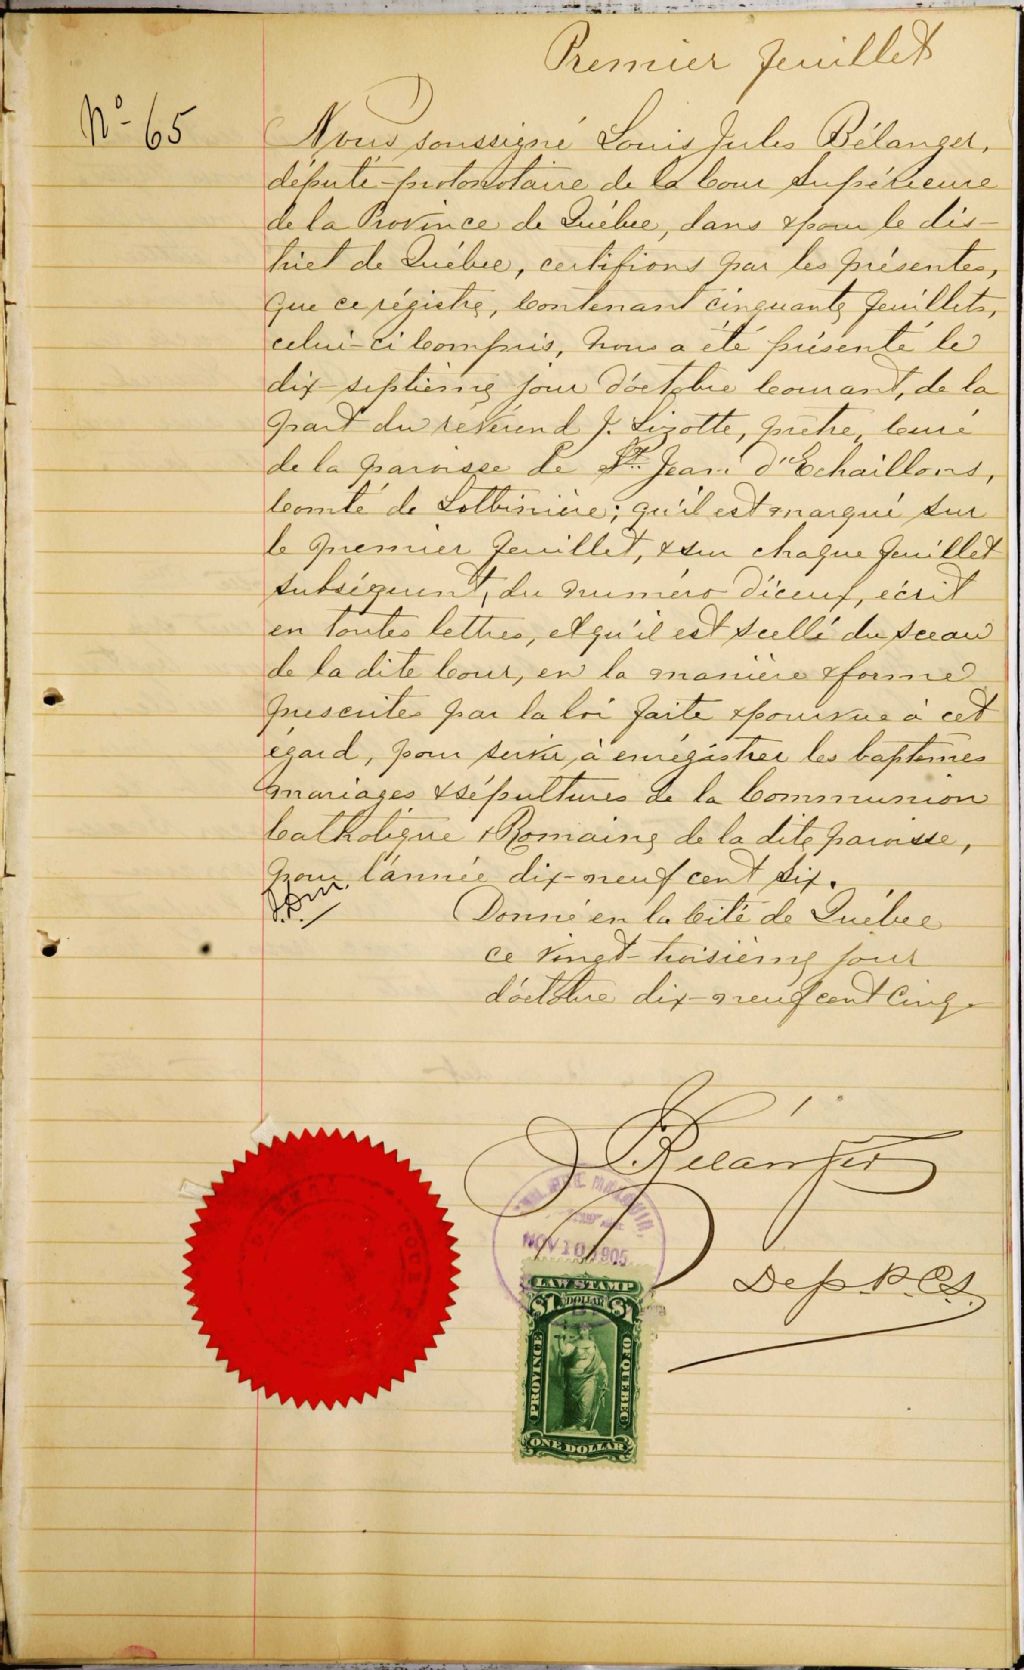 Premier feuillet
No 65
Nous soussigné Louis Jules Bélanger,
député-protonotaire de la Cour Supérieure
de la Province de Québec, dans & pour le dis-
trict de Québec, certifions par les présentes,
que ce régistre, Contenant cinquante feuillets,
celui-ci Compris, nous a été présenté le
dix-septième jour d'octobre Courant, de la
part du révérend J. Lizotte, prêtre, Curé
de la paroisse de St. Jean d'Echaillons,
Comté de Lotbinière; qu'il est marqué sur
le premier feuillet, & sur chaque feuillet
subséquent, du numéro d'iceux, écrit
en toutes lettres, et qu'il est scellé du sceau
de la dite Cour, en la manière & forme
prescrites par la loi faite & pourvue à cet
égard, pour servir, à enrégistrer les baptêmes
mariages & sépultures de la Communion
Catholique & Romaine de la dite paroisse,
pour l'année dix-neuf cent six.
Donné en la Cité de Québec
ce vingt-troisième jour
d'octobre dix-neuf cent Cinq.
J. Bélanger
Dep. P.C.S.
NOV 10 1905
LAW STAMP
$1 DOLLAR $1
PROVINCE
OF QUEBEC
ONE DOLLAR